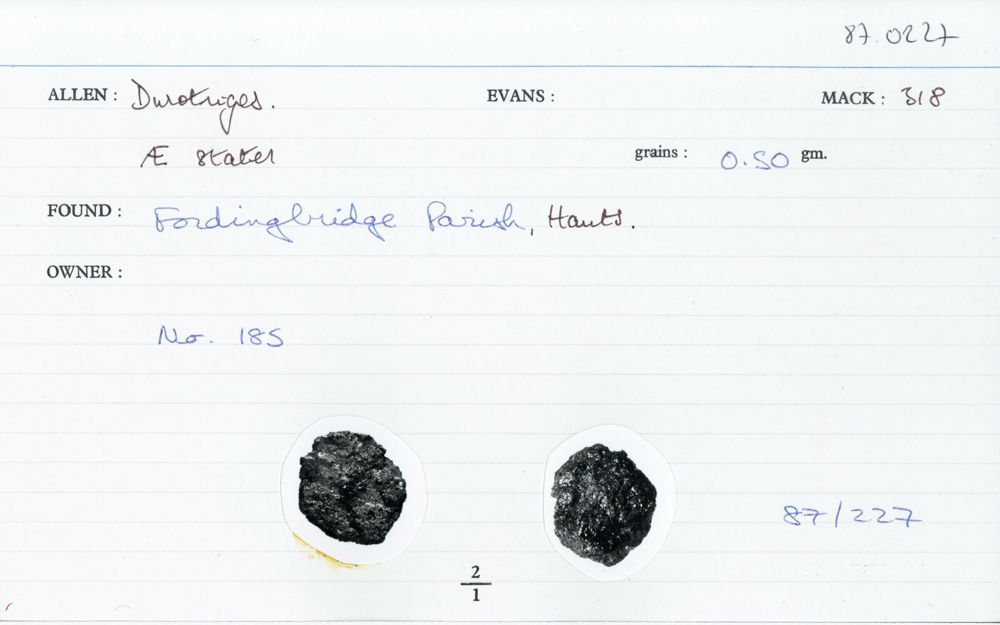 87.0227
ALLEN : Durotriges. EVANS : MACK : 318
Æ stater grains : 0.50 gm.
FOUND : Fordingbridge Parish, Hants.
OWNER :
No. 185
87/227
2
1